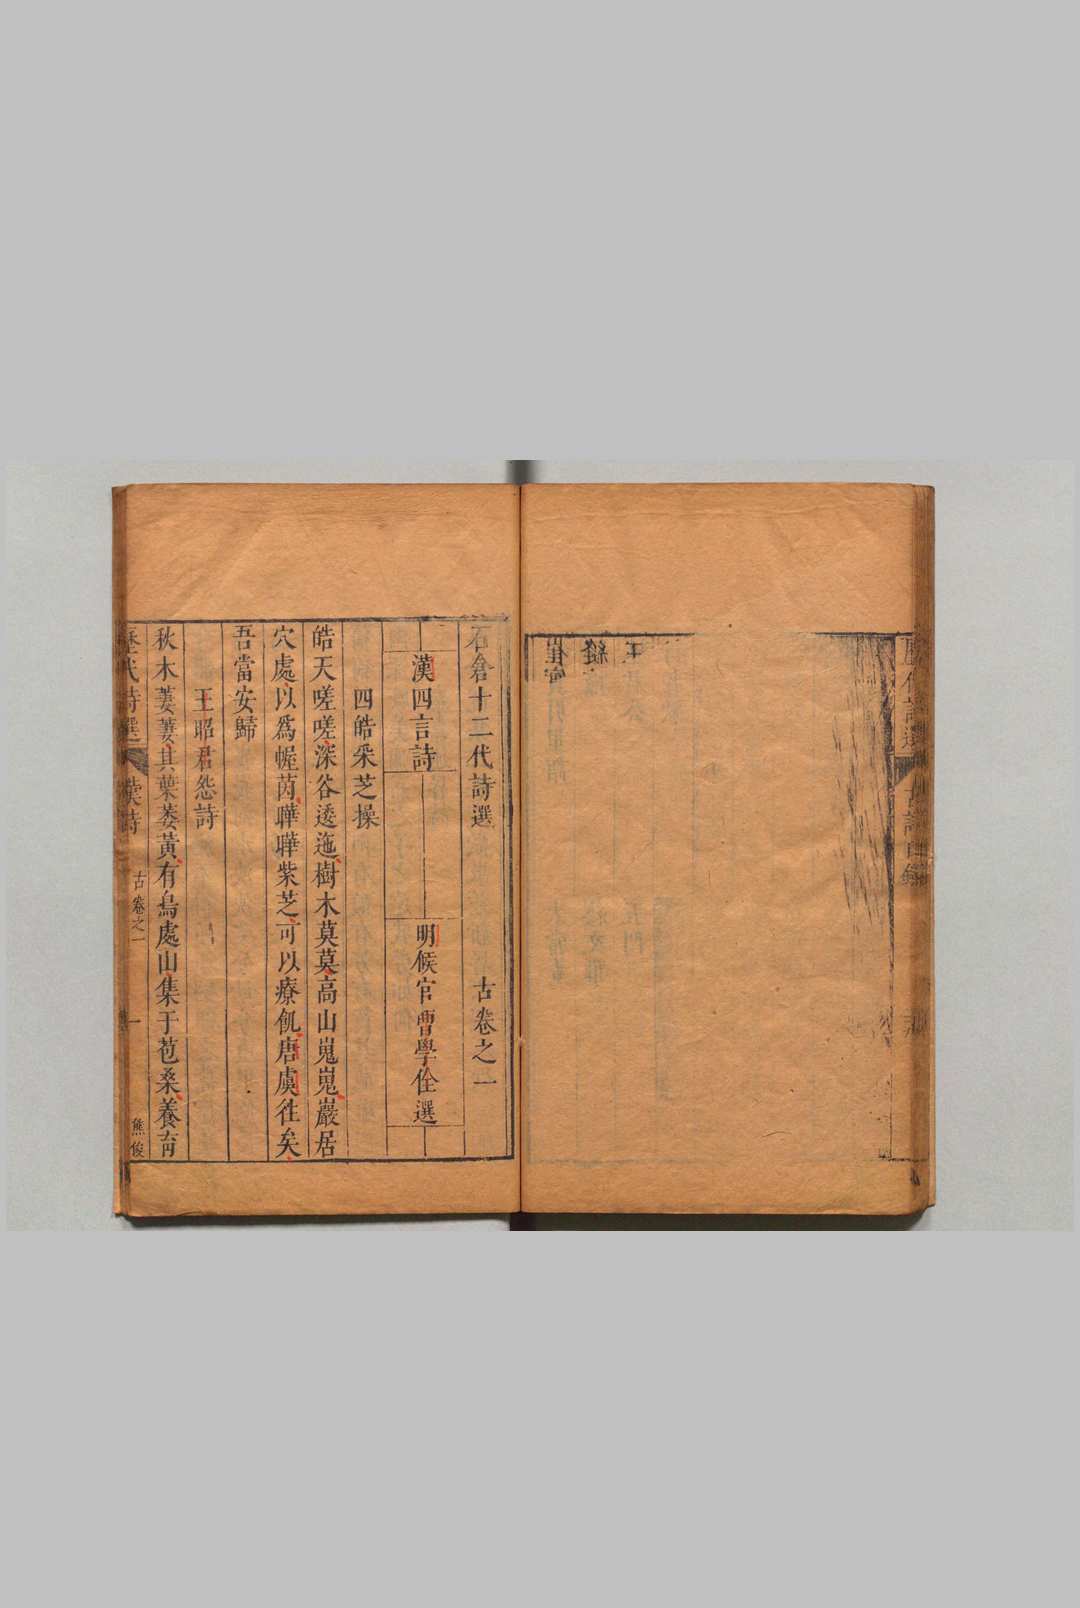 石倉十二代詩選 古卷之一
漢四言詩 明候官曹學佺選
四皓采芝操
皓天嗟嗟深谷逶迤樹木莫莫高山嵬嵬巖居
穴處以爲幄茵曄曄紫芝可以療飢唐虞徃矣
吾當安歸
王昭君怨詩
秋木萋萋其葉萎黃有鳥處山集于苞桑養育
歷代詩選 漢詩 古卷之一 一 熊俊